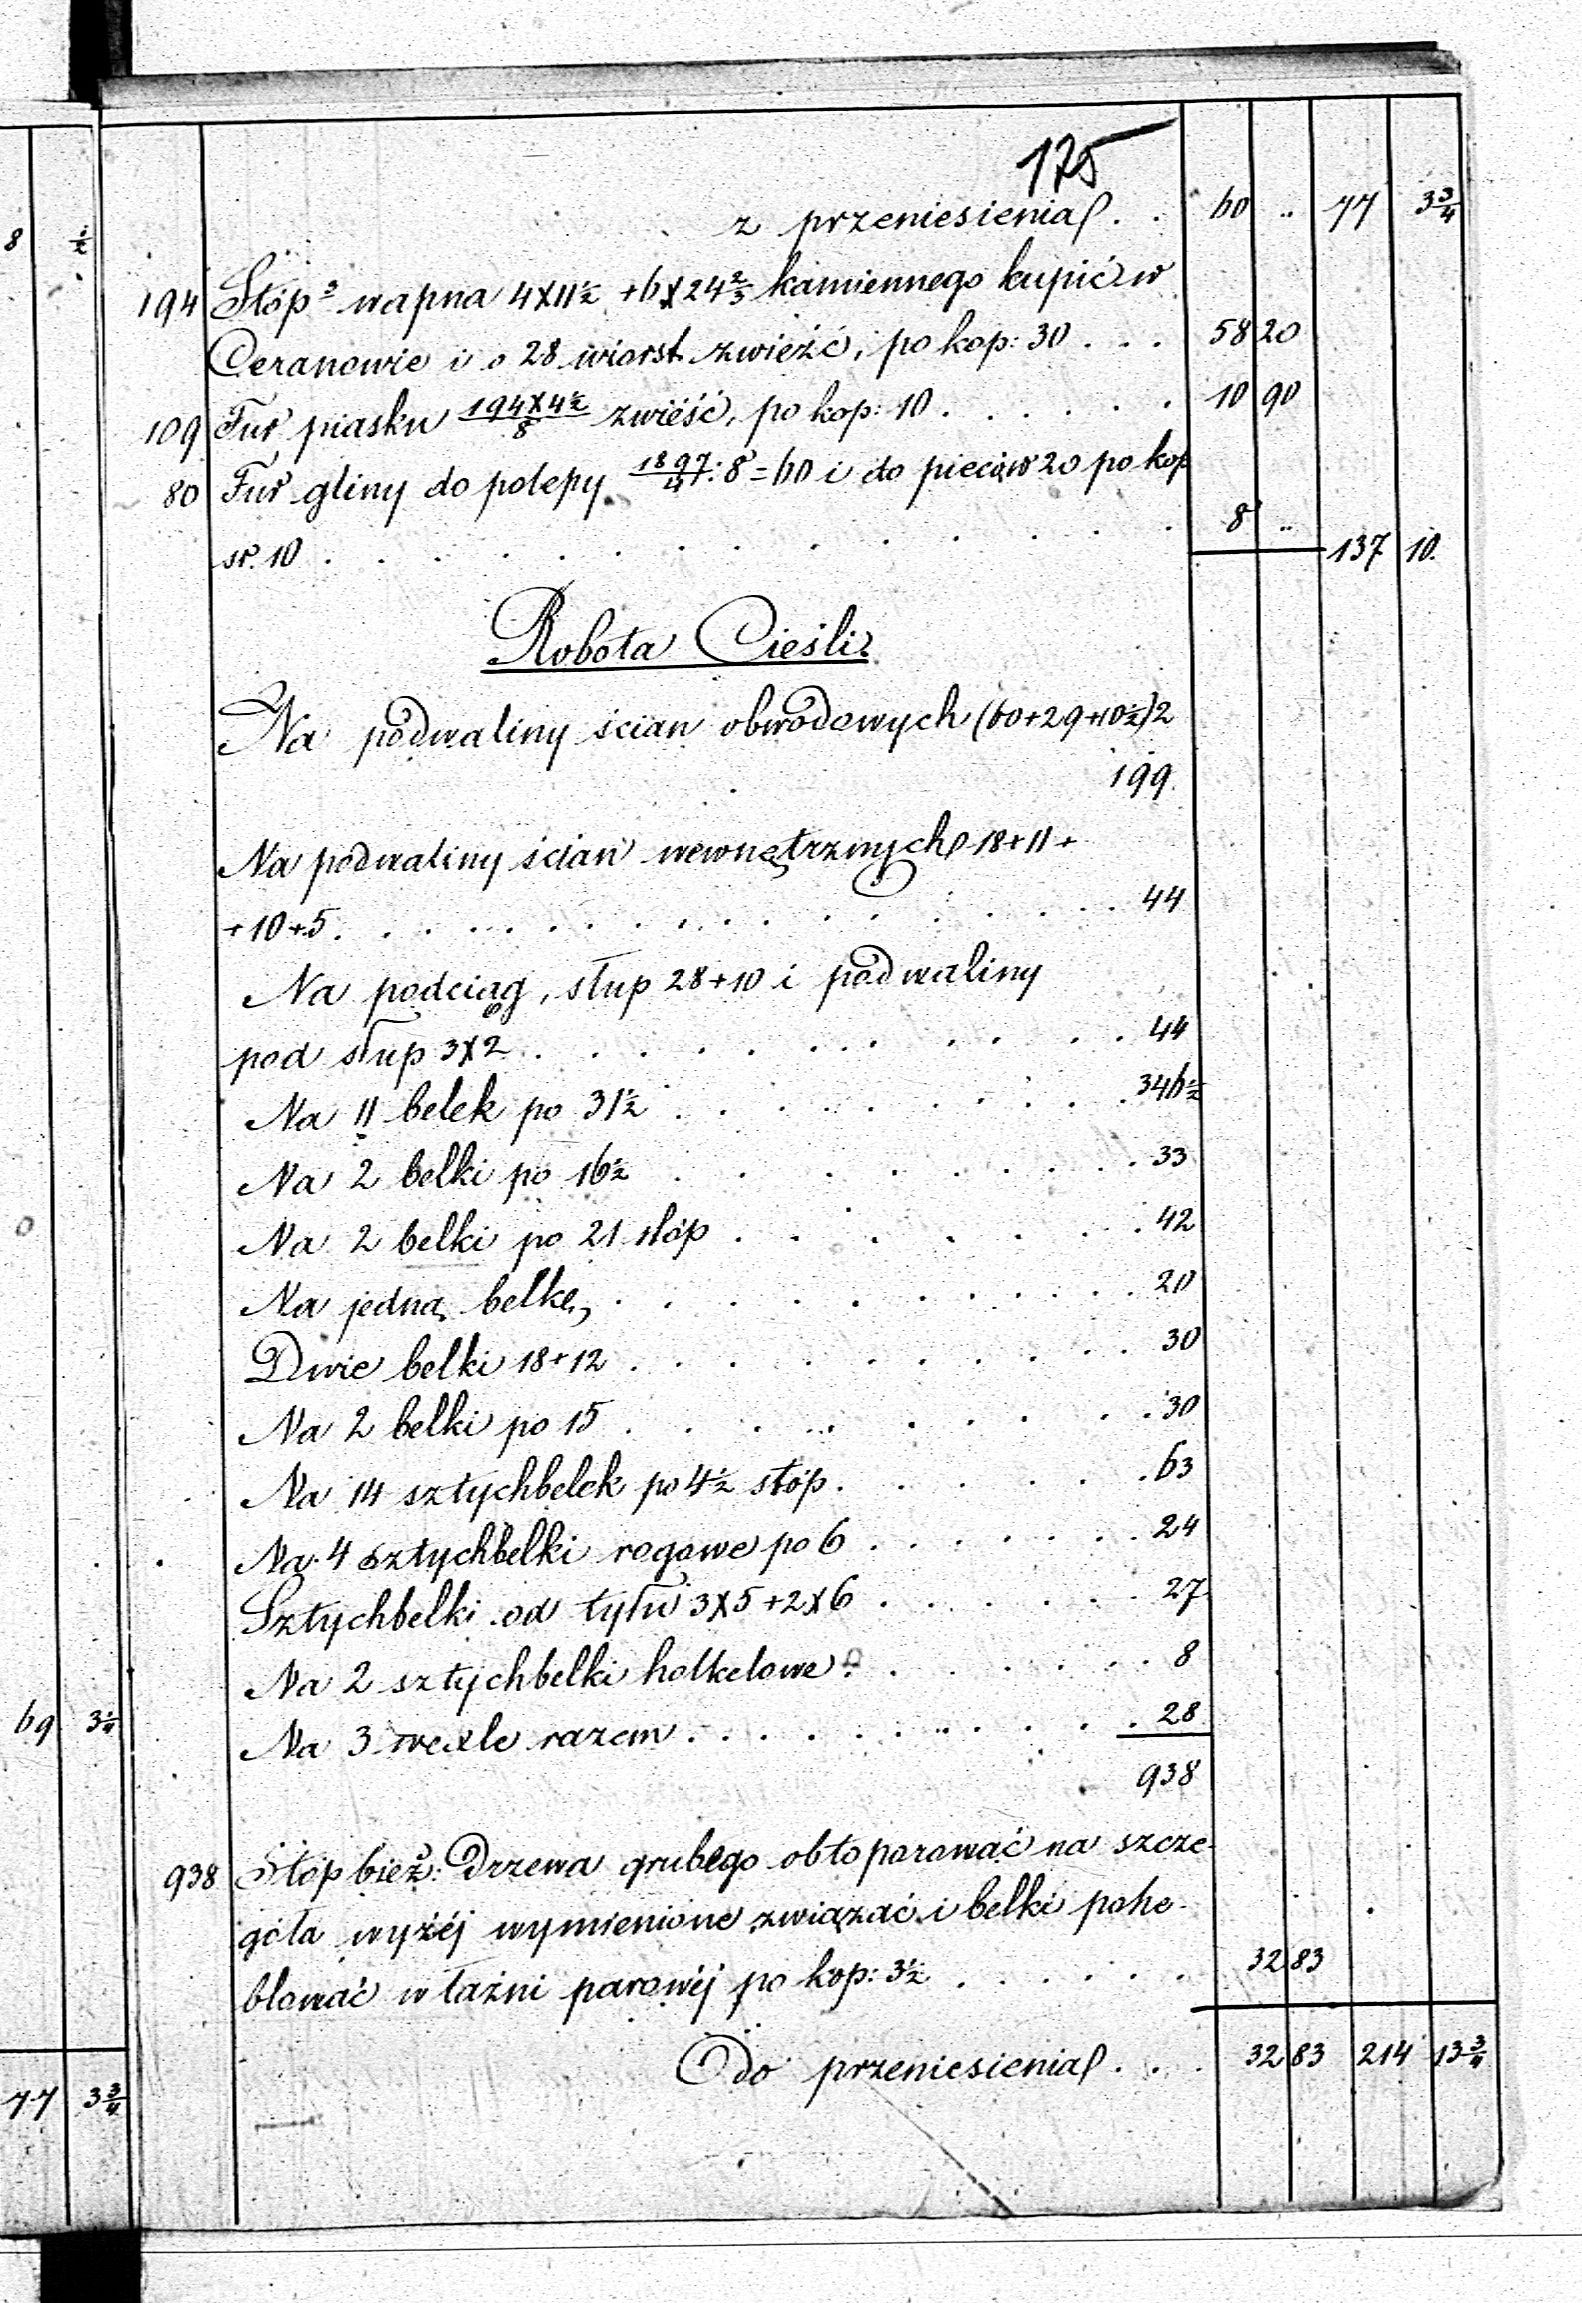 175
z przeniesienia . . 60 „ 77 3 3/4
194 Stóp³ wapna 4×11 1/2 + 6×24 2/3 kamiennego kupić w
Ceranowie i o 28 wiorst zwieźć, po kop: 30 . . . 58 20
109 Fur piasku 194×4 1/2 / 8 zwieść, po kop: 10 . . . . . . 10 90
80 Fur gliny do polepy 1897/4 : 8 = 60 i do pieców 20 po kop
sr. 10 . . . . . . . . . . . . . 8 „ 137 10.
Robota Cieśli
Na podwaliny ścian obwodowych (60+29+10 1/2)2
199
Na podwaliny ścian wewnętrznych 18+11+
+10+5 . . . . . . . . . . . . . 44
Na podciąg, słup 28+10 i podwaliny
pod słup 3×2 . . . . . . . . . . . 44
Na 11 belek po 31 1/2 . . . . . . . . . 346 1/2
Na 2 belki po 16 1/2 . . . . . . . . . 33
Na 2 belki po 21 stóp . . . . . . . . 42
Na jedną belkę . . . . . . . . . . 20
Dwie belki 18+12 . . . . . . . . . 30
Na 2 belki po 15 . . . . . . . . . 30
Na 14 sztychbelek po 4 1/2 stóp . . . . . . 63
Na 4 sztychbelki rogowe po 6 . . . . . . 24
Sztychbelki od tyłu 3×5+2×6 . . . . . . 27
Na 2 sztychbelki holkelowe . . . . . . . 8
Na 3 wexle razem . . . . . . . . . 28
938
938 Stóp bież: Drzewa grubego obtoporować na szcze-
góła wyżéj wymienione związać i belki pohe-
blować w łaźni parowéj po kop: 3 1/2 . . . . . . 32 83
Do przeniesienia . . . 32 83 214 13 3/4
8 1/2
69 3 1/4
77 3 3/4